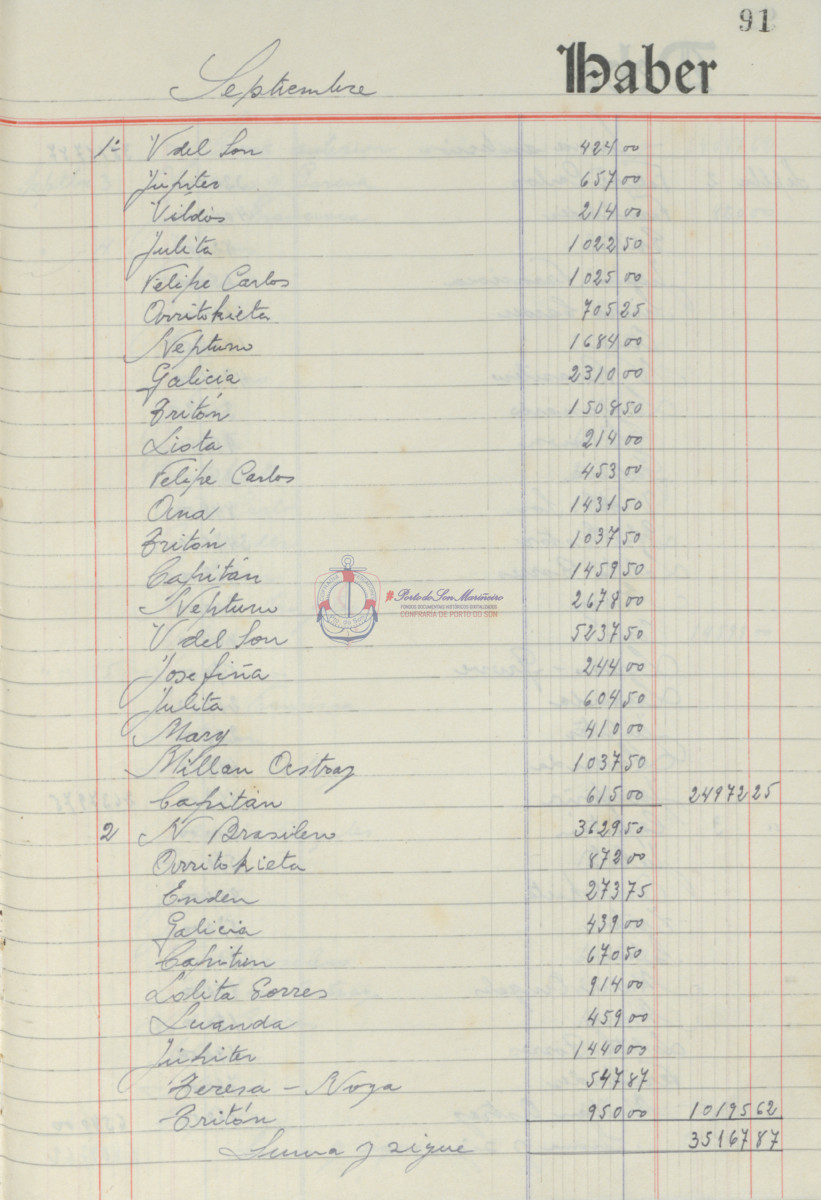 91
Septiembre Haber
1º V del Son 424 00
Júpiter 657 00
Vildòs 214 00
Julita 1022 50
Felipe Carlos 1025 00
Orritokieta 705 25
Neptuno 1684 00
Galicia 2310 00
Tritón 1508 50
Liota 214 00
Felipe Carlos 453 00
Ana 1431 50
Tritón 1037 50
Capitán 1459 50
Neptuno 2678 00
V del Son 5237 50
Josefiña 244 00
Julita 604 50
Mary 410 00
Millan Astray 1037 50
Capitán 615 00 24972 25
2 N Brasileno 3629 50
Orritokieta 872 00
Enden 273 75
Galicia 439 00
Capitan 670 50
Lolita Torres 914 00
Luanda 459 00
Júpiter 1440 00
Teresa - Noya 547 87
Tritón 950 00 10195 62
Suma y sigue 35167 87
#Porto do Son Mariñeiro
FONDOS DOCUMENTAIS HISTÓRICOS DIXITALIZADOS
CONFRARÍA DE PORTO DO SON